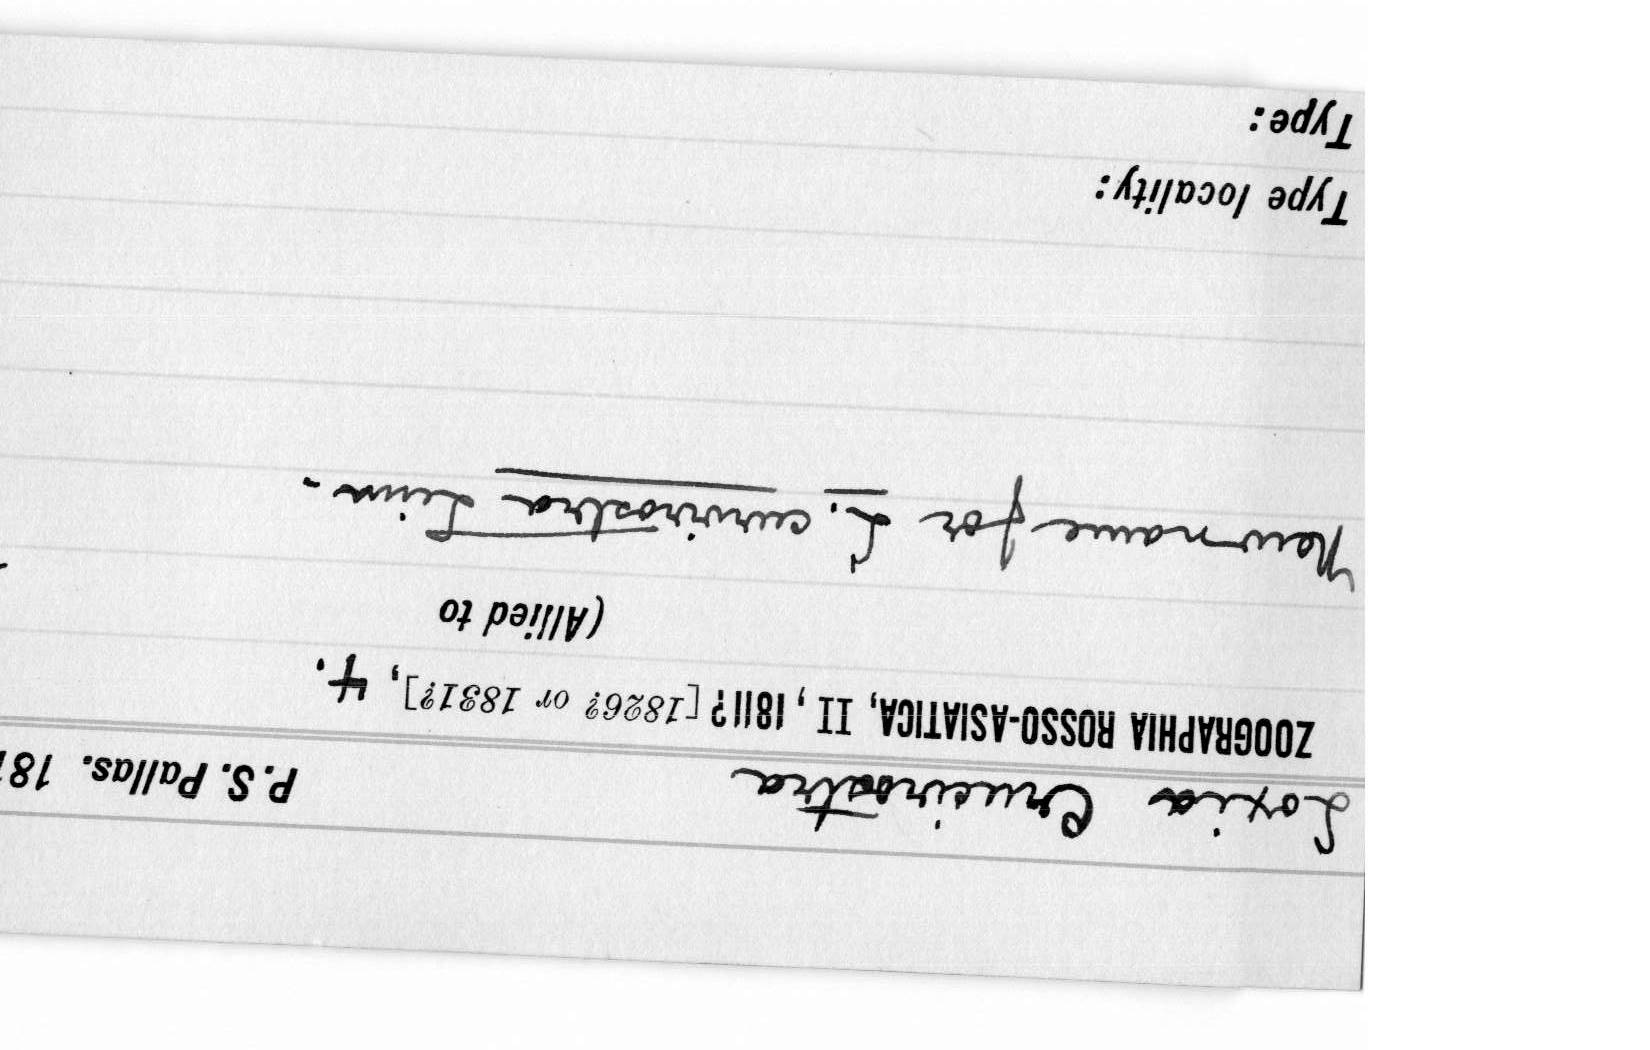 Loxia Crucirostra P.S. Pallas. 181
ZOOGRAPHIA ROSSO-ASIATICA, II, 1811? [1826? or 1831?], 4.
(Allied to
New name for L. curvirostra Linn.
Type locality:
Type: